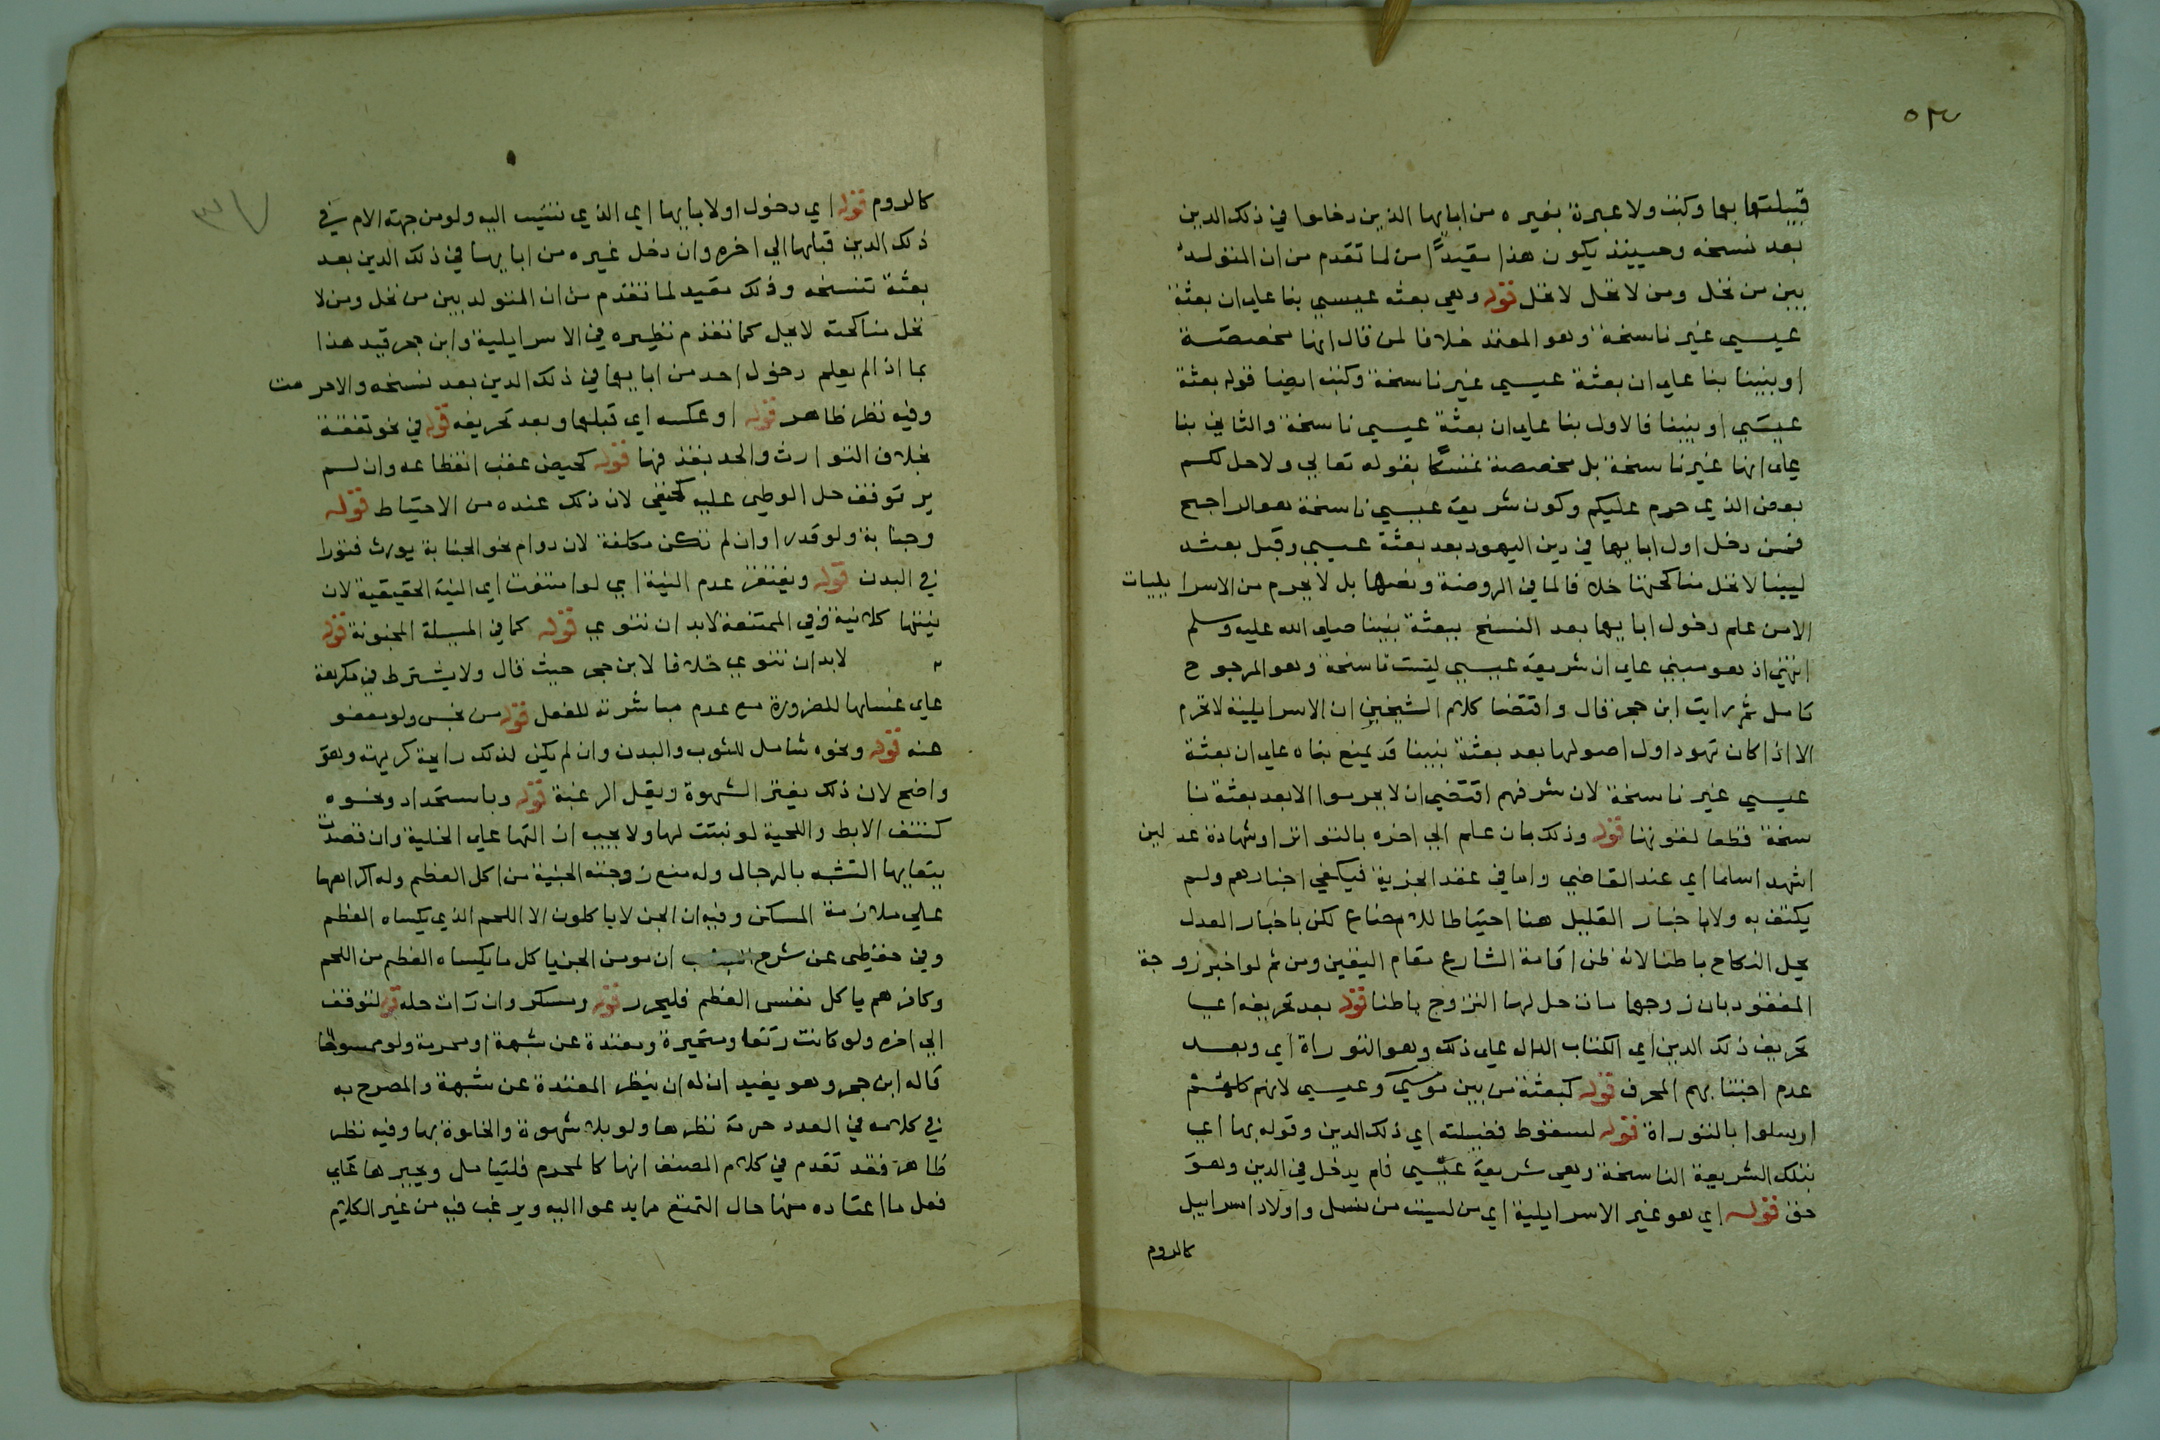 قبيلتها بها وكتب ولا عبرة بغيره من ابايها الذين دخلوا في ذلك الدين
بعد نسخه وحينئذ يكون هذا مقيدًا من لما تقدم من ان المتولد
بين من تحل ومن لا تحل لا تحل قوله وهي بعثة عيسي بنا علي ان بعثة
عيسي غير ناسخة وهو المعتمد خلافا لمن قال انها مخصصة
او نبينا بنا علي ان بعثة عيسي غير ناسخة وكتب ايضا قوله بعثة
عيسي او نبينا فالاول بنا علي ان بعثة عيسي ناسخة والثاني بنا
علي انها غير ناسخة بل مخصصة تمسكا بقوله تعالي ولاحل لكم
بعض الذي حرم عليكم وكون شريعة عيسي ناسخة هو الراجح
فمن دخل اول ابايها في دين اليهود بعد بعثة عيسي وقبل بعثة
نبينا لا تحل مناكحتها خلافا لما في الروضة وبعضها بل لا يحرم من الاسراييليات
الا من علم دخول ابايها بعد النسخ ببعثة نبينا صلي الله عليه وسلم
انتهي اذ هو مبني علي ان شريعة عيسي ليست ناسخة وهو المرجوح
تامل ثم رايت ابن حجر قال واقتضا كلام الشيخين ان الاسرايلية لا تحرم
الا اذا كان تهود اول اصولها بعد بعثة نبينا قد يمنع بناه علي ان بعثة
عيسي غير ناسخة لان شرفهم اقتضي ان لا يحرموا الا بعد بعثة نا
سخة قطعا لقوتها قوله وذلك بان علم الي اخره بالتواتر او شهادة عدلين
اشهد اسلما اي عند القاضي واما في عقد الجزية فيكفي اخبارهم ولم
يكتف به ولا باخبار القليل هنا احتياطا للابضاع لكن باخبار العدل
يحل النكاح باطنا لانه ظن اقامة الشارع مقام اليقين ومن ثم لو اخبر زوجة
المفقود بان زوجها مات حل لها التزوج باطنا قوله بعد تحريفه اي
تحريف ذلك الدين اي الكتاب الدال علي ذلك وهو التوراة اي وبعد
عدم اجتنابهم المحرف قوله كبعثة من بين موسي وعيسي لانهم كلهم
ارسلوا بالتوراة قوله لسقوط فضيلته اي ذلك الدين وقوله بها اي
بتلك الشريعة الناسخة وهي شريعة عيسي فلم يدخل في الدين وهو
حق قوله اي هو غير الاسرايلية اي من ليست من نسل واولاد اسراييل
كالروم
كالروم قوله اي دخول اولابايها اي الذي تنتسب اليه ولو من جهة الام في
ذلك الدين قبلها الي اخره وان دخل غيره من ابايها في ذلك الدين بعد
بعثة تنسخه وذلك مقيد لما تقدم من ان المتولد بين من تحل ومن لا
تحل مناكحته لا يحل كما تقدم نظيره في الاسرايلية وابن حجر قيد هذا
بما اذا لم يعلم دخول احد من ابايها في ذلك الدين بعد نسخه والاحرمت
وفيه نظر ظاهر قوله او عكسه اي قبلها وبعد تحريفه قوله في نحو نفقة
بخلاف التوارث والحد بقذفها قوله كحيض عقب انقطاعه وان لم
ير توقف حل الوطي عليه كحنفي لان ذلك عنده من الاحتياط قوله
وجنابة ولو قدرا وان لم تكن مكلفة لان دوام نحو الجنابة يورث فتورا
في البدن قوله ويغتفر عدم النية اي لو امتنعت اي النية الحقيقية لان
نيتها كلانية وفي الممتنعة لابد ان تنوي قوله كما في المسلة المجنونة قوله
لابد ان تنوي خلافا لابن حجر حيث قال ولا يشترط في مكرهة
علي غسلها للضرورة مع عدم مباشرته للفعل قوله من نجس ولو معفو
عنه قوله ونحوه شامل للثوب والبدن وان لم يكن لذلك رايحة كريهة وهو
واضح لان ذلك يفتر الشهوة ويقل الرغبة قوله وباستحداد ونحوه
كنتف الابط واللحية لو نبتت لها ولا يجب ازالتها علي الخلية وان قصدت
ببقايها التشبه بالرجال وله منع زوجته الجنية من اكل العظم وله اكراهها
علي ملازمة المسكن وفيه ان الجن لا ياكلون الا اللحم الذي يكساه العظم
وفي حفظي عن شرح ان مومن الجن ياكل ما يكساه العظم من اللحم
وكافرهم ياكل نفس العظم فليحرر قوله ومسكر وان رات حله قوله لتوقف
الي اخره ولو كانت رتقا ومتحيرة ومعتدة عن شبهة او محرمة ولو ممسوحا
قاله ابن حجر وهو يفيد ان له ان ينظر المعتدة عن شبهة والمصرح به
في كلامه في العدد حرمة نظرها ولو بلا شهوة والخلوة بها وفيه نظر
ظاهر فقد تقدم في كلام المصنف انها كالمحرم فليتامل ويجبرها علي
فعل ما اعتاده منها حال التمتع مما يدعوا اليه ويرغب فيه من غير الكلام